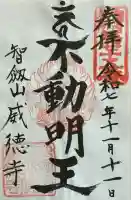 奉拝
令和七年十一月十一日
不動明王
智劔山威徳寺